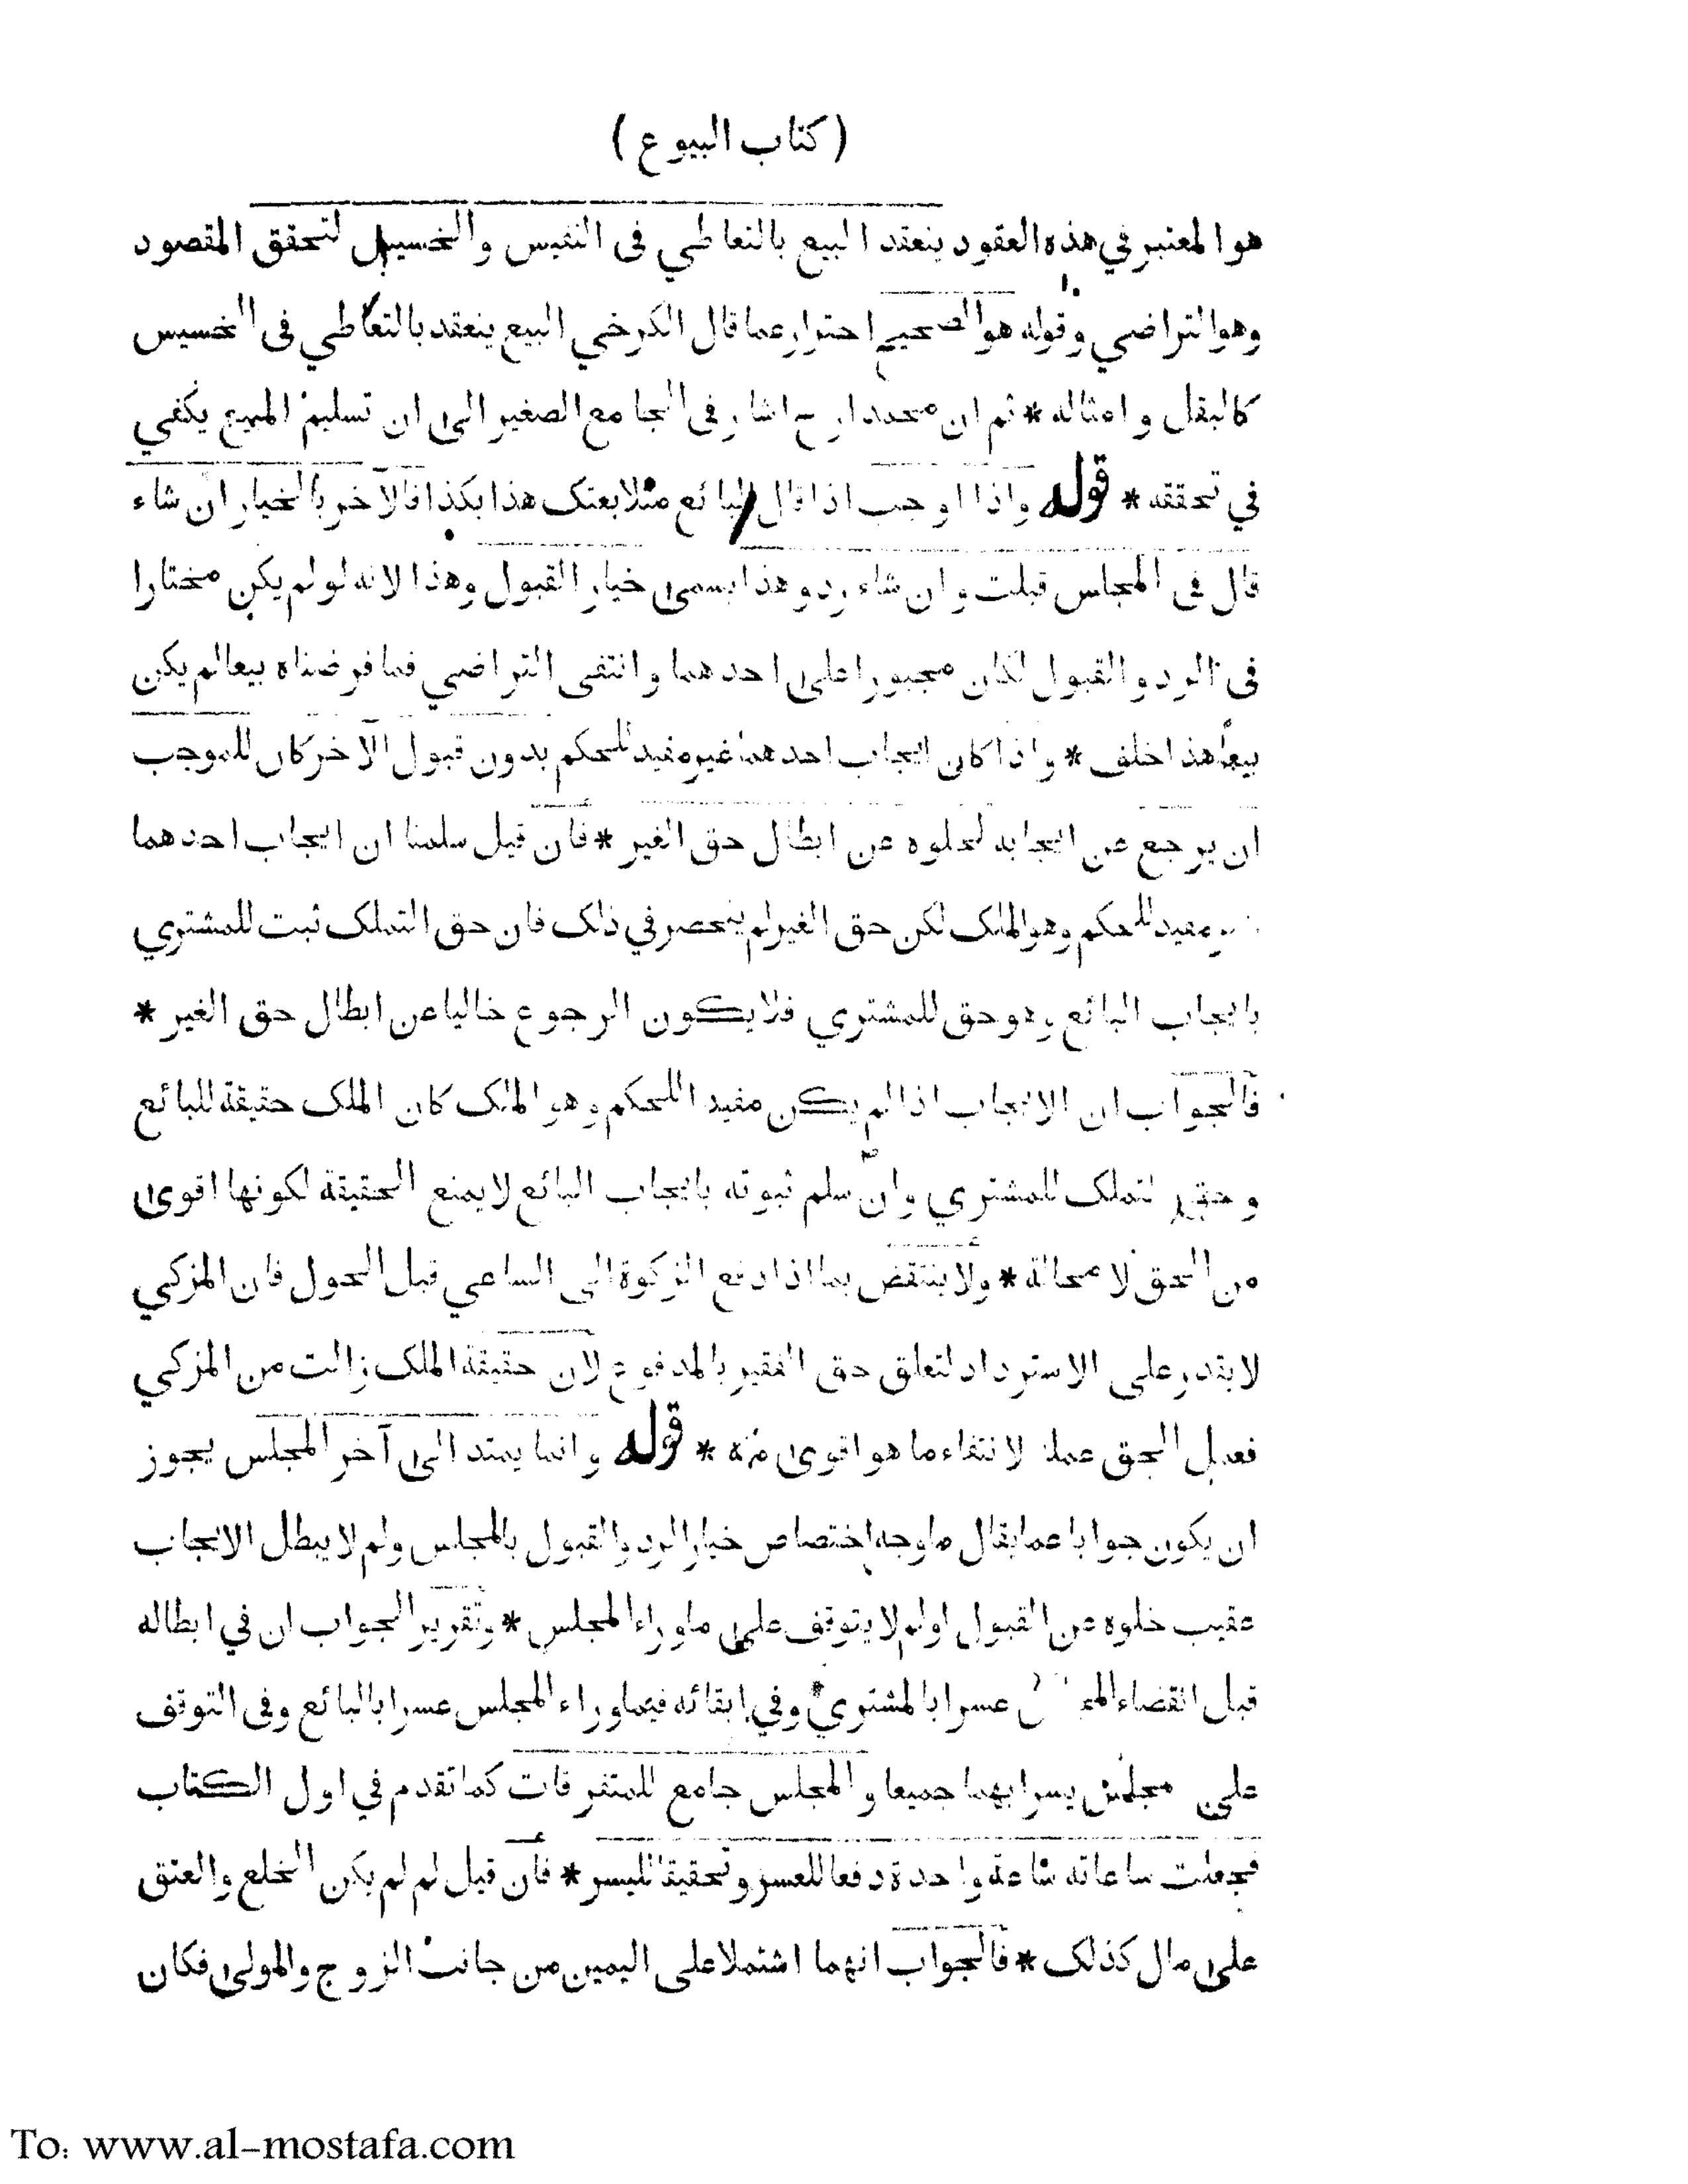 ( كتاب البيوع )
هو المعتبر في هذه العقود ينعقد البيع بالتعاطي فى النفيس والخسيس لتحقق المقصود
وهو التراضي وقوله هو الصحيح احتراز عما قال الكرخي البيع ينعقد بالتعاطي فى الخسيس
كالبقل وامثاله * ثم ان محمدا رح اشار فى الجامع الصغير الى ان تسليم المبيع يكفي
في تحققه * قوله واذا اوجب اذا قال البائع مثلا بعتك هذا بكذا فالآخر بالخيار ان شاء
قال فى المجلس قبلت وان شاء رد وهذا يسمى خيار القبول وهذا لانه لو لم يكن مختارا
فى الرد والقبول لكان مجبورا على احدهما وانتفى التراضي فما فرضناه بيعا لم يكن
بيعا هذا خلف * واذا كان ايجاب احدهما غير مفيد للحكم بدون قبول الآخر كان للموجب
ان يرجع عن ايجابه لخلوه عن ابطال حق الغير * فان قيل سلمنا ان ايجاب احدهما
مفيد للحكم وهو الملك لكن حق الغير لم ينحصر في ذلك فان حق التملك ثبت للمشتري
بايجاب البائع وهو حق للمشتري فلا يكون الرجوع خاليا عن ابطال حق الغير *
فالجواب ان الايجاب اذا لم يكن مفيدا للحكم وهو الملك كان الملك حقيقة للبائع
وحق التملك للمشتري وان سلم ثبوته بايجاب البائع لا يمنع الحقيقة لكونها اقوى
من الحق لا محالة * ولا ينتقض بما اذا دفع الزكوة الى الساعي قبل الحول فان المزكي
لا يقدر على الاسترداد لتعلق حق الفقير بالمدفوع لان حقيقة الملك زالت من المزكي
فعمل الحق عمله لانتفاء ما هو اقوى منه * قوله وانما يمتد الى آخر المجلس يجوز
ان يكون جوابا عما يقال ما وجه اختصاص خيار الرد والقبول بالمجلس ولم لا يبطل الايجاب
عقيب خلوه عن القبول او لم لا يتوقف على ما وراء المجلس * وتقرير الجواب ان في ابطاله
قبل انقضاء عسرا بالمشتري وفي ابقائه فيما وراء المجلس عسرا بالبائع وفى التوقف
على مجلس يسرا بهما جميعا والمجلس جامع للمتفرقات كما تقدم في اول الكتاب
فجعلت ساعاته ساعة واحدة دفعا للعسر وتحقيقا لليسر * فان قيل لم لم يكن الخلع والعتق
على مال كذلك * فالجواب انهما اشتملا على اليمين من جانب الزوج والمولى فكان
To: www.al-mostafa.com